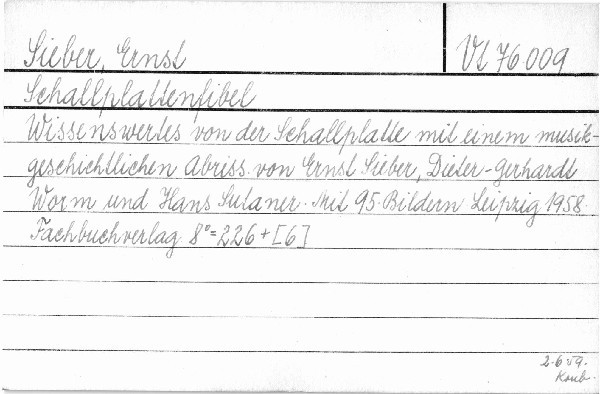 Sieber, Ernst Vt 76009
Schallplattenfibel
Wissenswertes von der Schallplatte mit einem musik-
geschichtlichen Abriss. von Ernst Sieber, Dieter-Gerhardt
Worm und Hans Sutaner. Mit 95 Bildern Leipzig 1958.
Fachbuchverlag 8°=226+[6]
2.6.59.